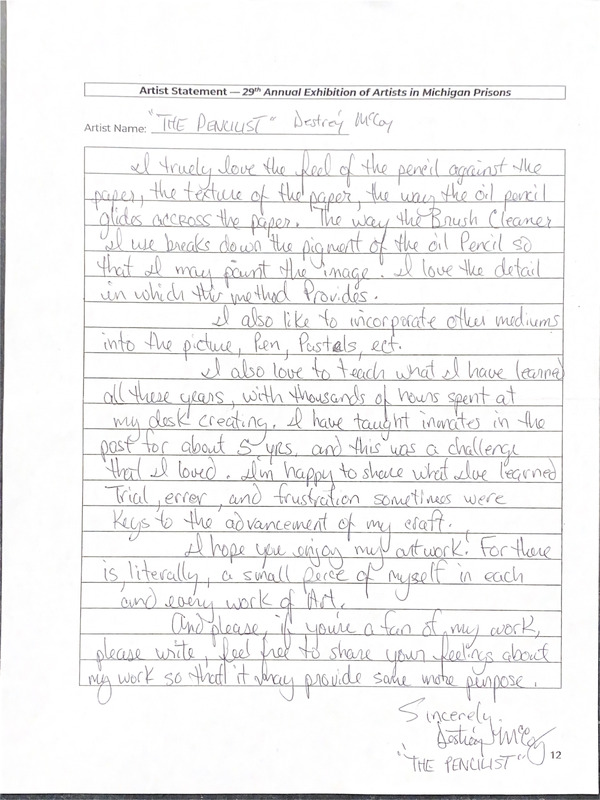 Artist Statement — 29th Annual Exhibition of Artists in Michigan Prisons
Artist Name: "THE PENCILIST" Destréy McCoy
I truely love the feel of the pencil against the
paper, the texture of the paper, the way the oil pencil
glides accross the paper. The way the Brush Cleaner
I use breaks down the pigment of the oil Pencil so
that I may paint the image. I love the detail
in which this method Provides.
I also like to incorporate other mediums
into the picture, Pen, Pastels, ect.
I also love to teach what I have learned
all these years, with thousands of hours spent at
my desk creating. I have taught inmates in the
past for about 5 yrs. and this was a challenge
that I loved. I'm happy to share what I've learned
Trial, error, and frustration sometimes were
Keys to the advancement of my craft.
I hope you enjoy my artwork. For there
is, literally, a small peice of myself in each
and every work of Art.
And please, if youre a fan of my work,
please write, feel free to share your feelings about
my work so that it may provide some more purpose.
Sincerely.
Destréy McCoy
"THE PENCILIST"
12